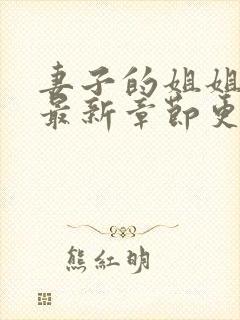 妻子的姐姐
最新章節更
熊紅明